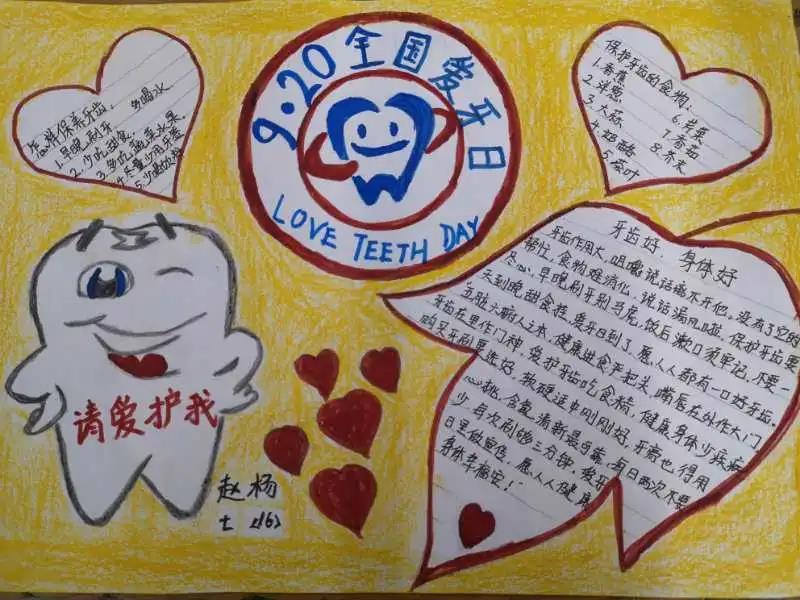 9·20全国爱牙日
LOVE TEETH DAY
怎样保养牙齿.
1.早晚刷牙
多喝水
2.少吃甜食.
3.多吃蔬菜水果
保护牙齿的食物.
1.香蕉
2.洋葱
3.大蒜
4.奶酪
5.茶叶
6.芹菜
7.香菇
8.芥末
请爱护我
赵杨
七 (16)
牙齿好.身体好
牙齿作用大,咀嚼说话离不开他。没有了它的
帮忙,食物难消化,说话漏风啦。保护牙齿要
尽心,早晚刷牙别马虎,饭后漱口要牢记,不要一
天到晚甜食粘,爱牙日到了,愿人人都有一口好牙齿.
健康进食严把关,嘴唇在外作大门
牙齿在里作门神,爱护牙齿吃食精,健康身体少疾病
购买牙刷要选好,软硬适中刚刚好.牙膏也得用
心挑,含氟清新最可靠,每日两次不要
少,每次刷够三分钟,爱牙
日里做宣传,愿人人健康
身体幸福安!